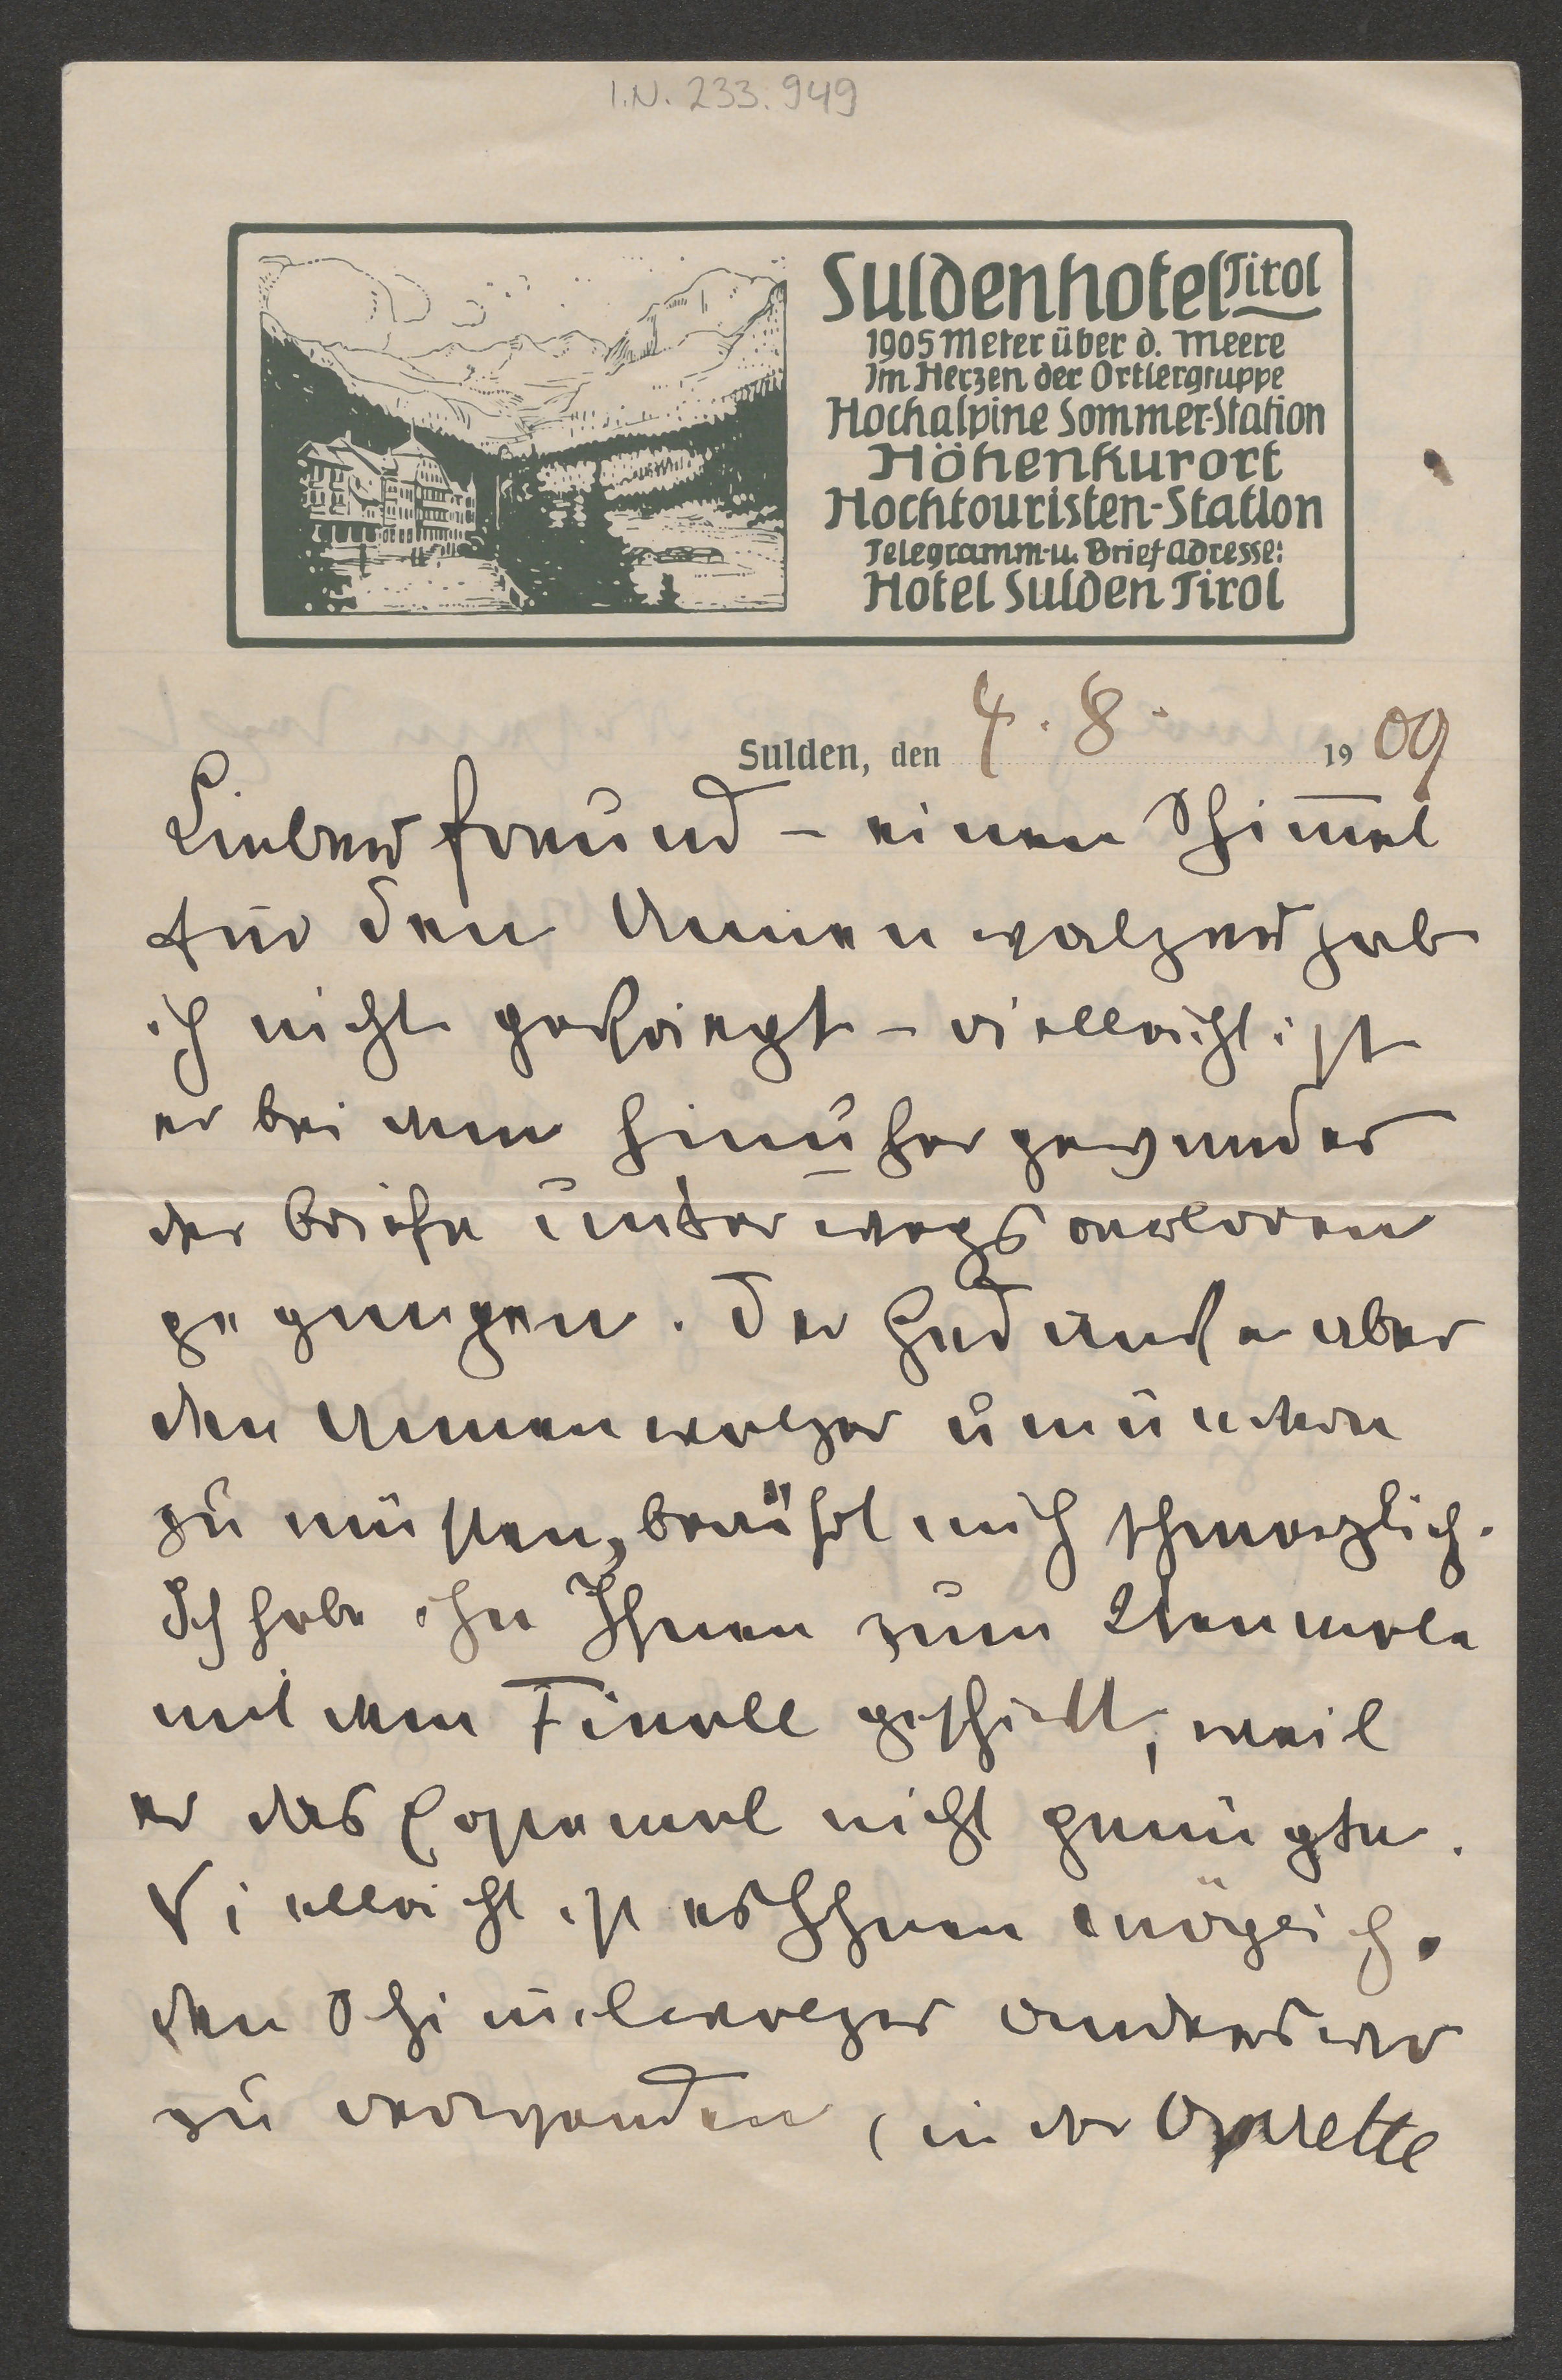 I.N. 233.949
Suldenhotel Tirol
1905 Meter über d. Meere
Im Herzen der Ortlergruppe
Hochalpine Sommer-Station
Höhenkurort
Hochtouristen-Station
Telegramm- u. Brief Adresse:
Hotel Sulden Tirol
Sulden, den 4. 8. 1909
Lieber Freund – einen Schim̅el
für den Annenwalzer hab
ich nicht gekriegt – vielleicht ist
er bei dem Hin u̲ her gewander
der Briefe unterwegs verloren
gegangen. Der Gedanke aber
den Annenwalzer um ändern
zu müssen, berührt mich schmerzlich.
Ich habe ihn Ihnen zum 2ten male
mit dem Finale geschickt, weil
er das erstemal nicht genügte.
Vielleicht ist es Ihnen möglich,
den Schimelwalzer anderswo
zu verwenden, in der Operette